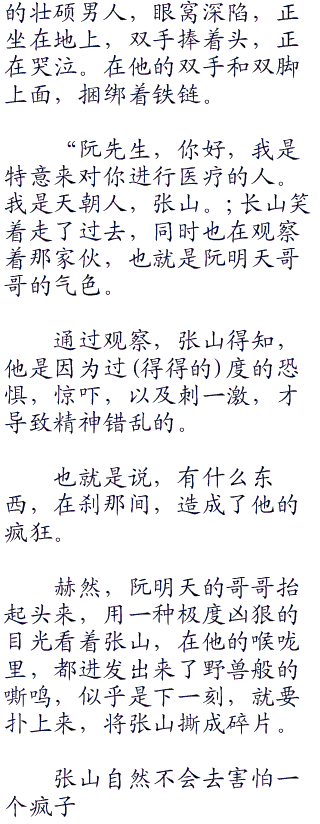 的壮硕男人，眼窝深陷，正
坐在地上，双手捧着头，正
在哭泣。在他的双手和双脚
上面，捆绑着铁链。
“阮先生，你好，我是
特意来对你进行医疗的人。
我是天朝人，张山。;长山笑
着走了过去，同时也在观察
着那家伙，也就是阮明天哥
哥的气色。
通过观察，张山得知，
他是因为过(得得的)度的恐
惧，惊吓，以及刺一激，才
导致精神错乱的。
也就是说，有什么东
西，在刹那间，造成了他的
疯狂。
赫然，阮明天的哥哥抬
起头来，用一种极度凶狠的
目光看着张山，在他的喉咙
里，都迸发出来了野兽般的
嘶鸣，似乎是下一刻，就要
扑上来，将张山撕成碎片。
张山自然不会去害怕一
个疯子